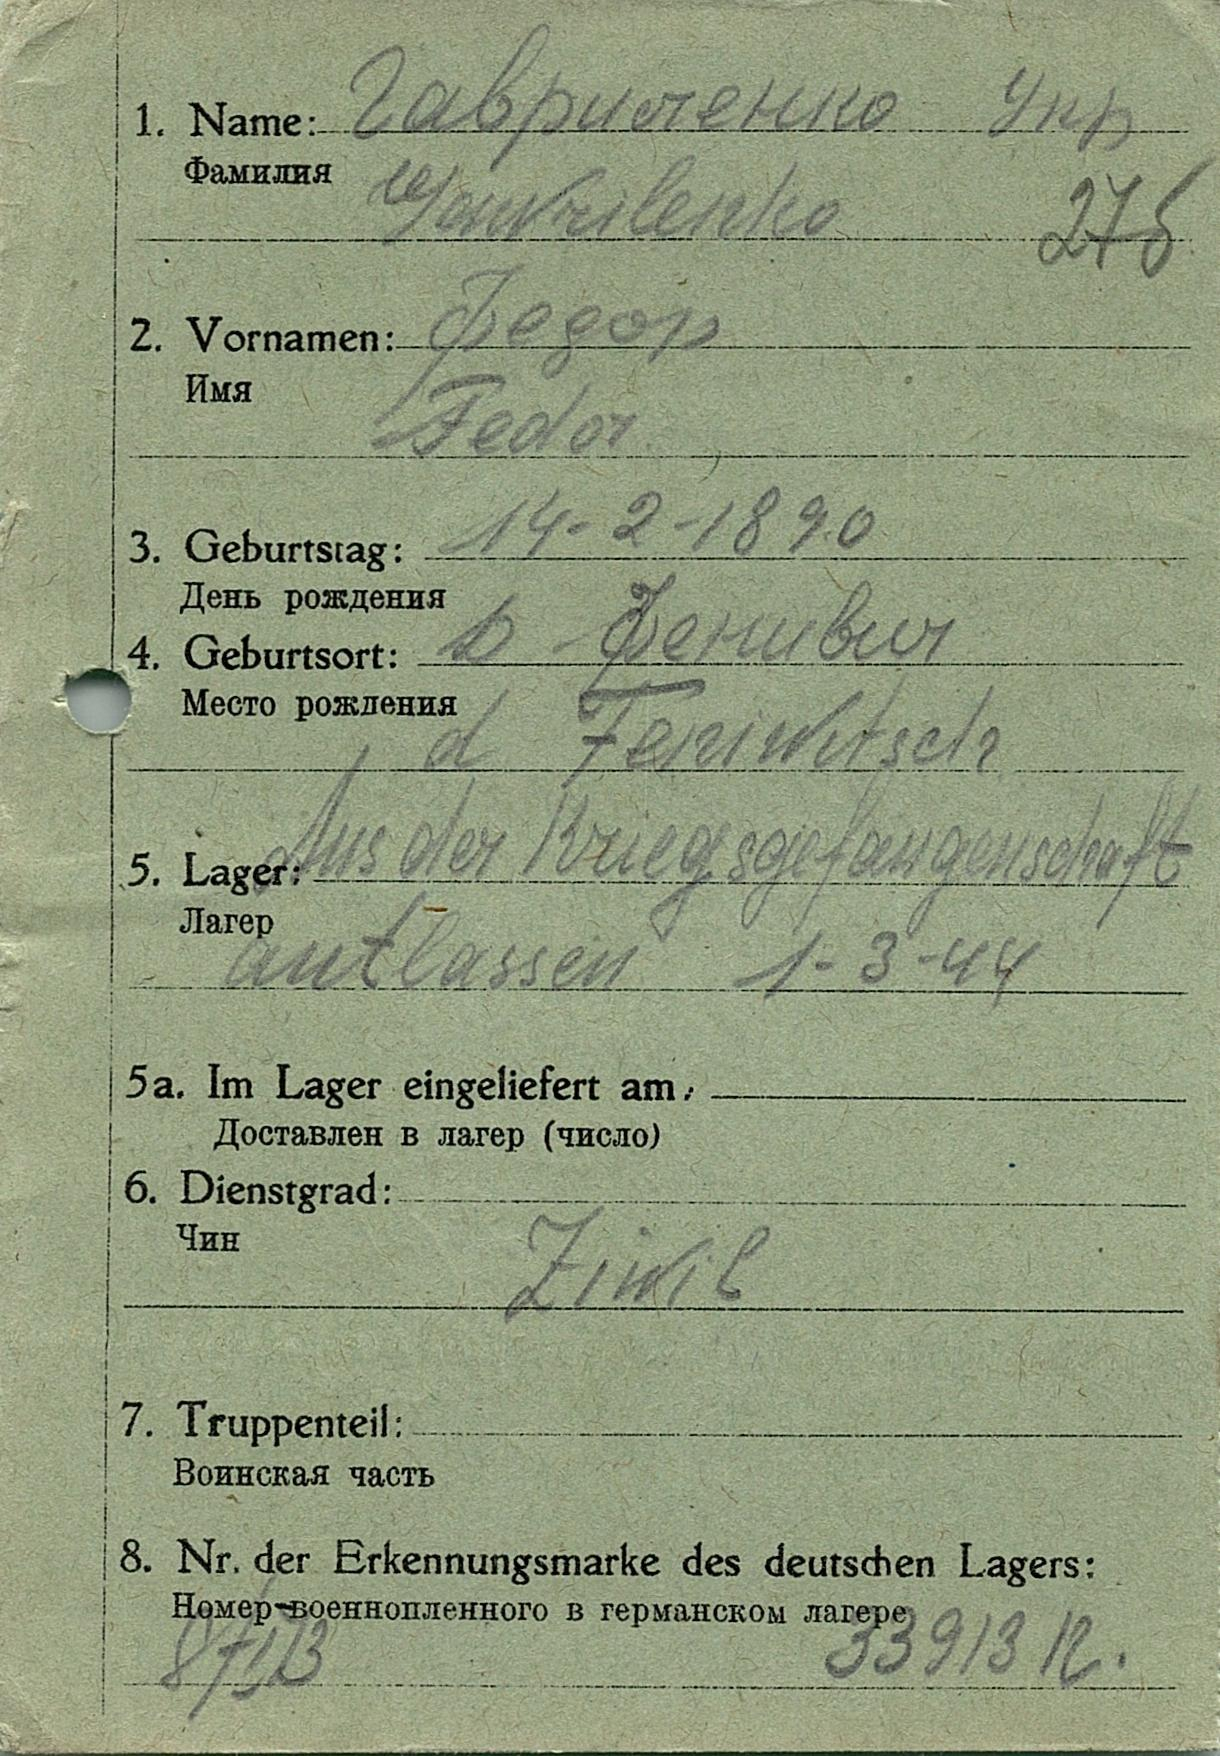 1. Name: Гавриленко Укр
Фамилия Gawrilenko 276
2. Vornamen: Федор
Имя
Fedor
3. Geburtstag: 14-2-1890
День рождения
4. Geburtsort: д Фенивич
Место рождения
d Feniwitsch
5. Lager: Aus der Kriegsgefangenschaft
Лагер
antlassen 1-3-44
5a. Im Lager eingeliefert am:
Доставлен в лагер (число)
6. Dienstgrad:
Чин
Ziwil
7. Truppenteil:
Воинская часть
8. Nr. der Erkennungsmarke des deutschen Lagers:
Номер военнопленного в германском лагере
33913